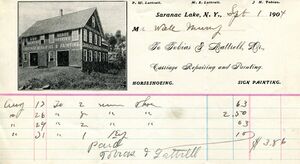 P. W. Luttrell.
M. E. Luttrell.
J. N. Tobias.
Saranac Lake, N. Y., Sept 1 1904
M
To Tobias & Luttrell, Dr.,
Carriage Repairing and Painting.
HORSESHOEING. SIGN PAINTING.
Aug 13 To 2 new Shoe 63
" 26 " 8 " " 2.50
" 29 " 2 " " 63
" 31 " 1 10
Paid $3.86
Tobias & Luttrell